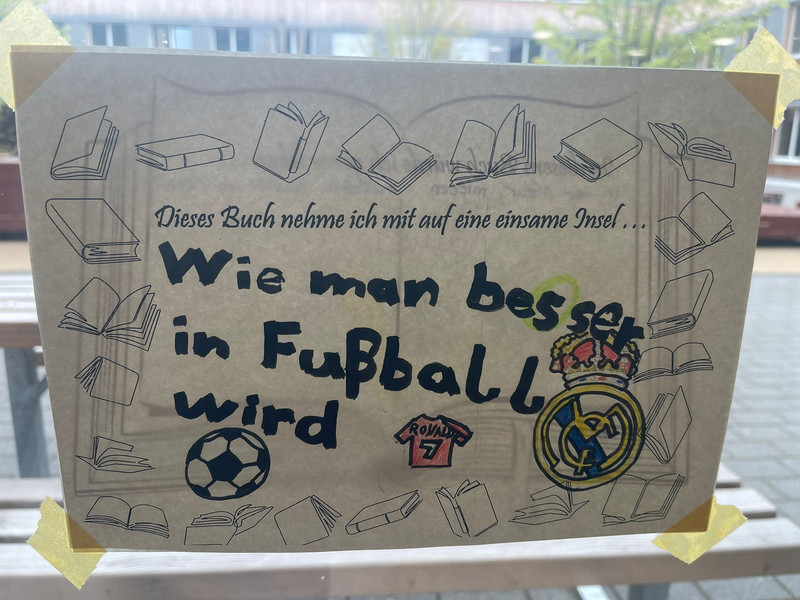 Dieses Buch nehme ich mit auf eine einsame Insel ...
Wie man besser
in Fußball
wird
RONAL
7